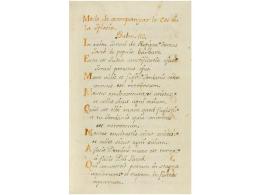 Modo de acompanyar lo Cos de
la Iglesia
In exitu Israel de domus
Jacob de populo barbaro
Facta est Judea sanctificatio ejus
Israel potestas ejus
Mare vidit et fugit Jordanis con
versus est retrorsum
Montes exultaverunt ut arietes
et colles sicut agni ovium
Quid est tibi mare quod fugisti
et tu Jordanis quia conversus
est retrorsum
Montes exultastis sicut arietes
et colles sicut agni ovium
A facie Domini mota est terra
a facie Dei Jacob
Qui convertit petram in stagna
aquarum et rupem in fontes
aquarum